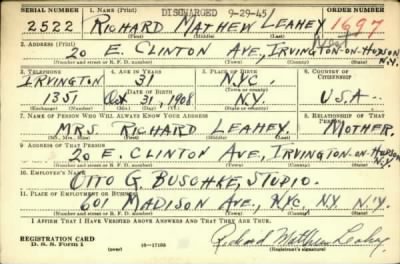 DISCHARGED 9-29-45
SERIAL NUMBER 1. NAME (Print) ORDER NUMBER
2522 RICHARD MATHEW LEAHEY 1697
(First) (Middle) (Last)
2. ADDRESS (Print)
20 E. CLINTON AVE, IRVINGTON-ON-HUDSON N.Y.
(Number and street or R. F. D. number) (Town) (County) (State)
3. TELEPHONE 4. AGE IN YEARS 5. PLACE OF BIRTH 6. COUNTRY OF CITIZENSHIP
IRVINGTON 31 NYC.
DATE OF BIRTH (Town or county)
1351 Oct 31, 1908 N.Y. U.S.A.
(Exchange) (Number) (Mo.) (Day) (Yr.) (State or country)
7. NAME OF PERSON WHO WILL ALWAYS KNOW YOUR ADDRESS 8. RELATIONSHIP OF THAT PERSON
MRS. RICHARD LEAHEY. MOTHER.
(Mr., Mrs., Miss) (First) (Middle) (Last)
9. ADDRESS OF THAT PERSON
20 E. CLINTON AVE, IRVINGTON-ON-HUDSON N.Y.
(Number and street or R. F. D. number) (Town) (County) (State)
10. EMPLOYER'S NAME
OTTO G. BUSCHKE, STUDIO.
11. PLACE OF EMPLOYMENT OR BUSINESS
601 MADISON AVE., NYC. NY. N.Y.
(Number and street or R. F. D. number) (Town) (County) (State)
I AFFIRM THAT I HAVE VERIFIED ABOVE ANSWERS AND THAT THEY ARE TRUE.
REGISTRATION CARD
D. S. S. Form 1 (over) 16-17105 Richard Mathew Leahey
(Registrant's signature)